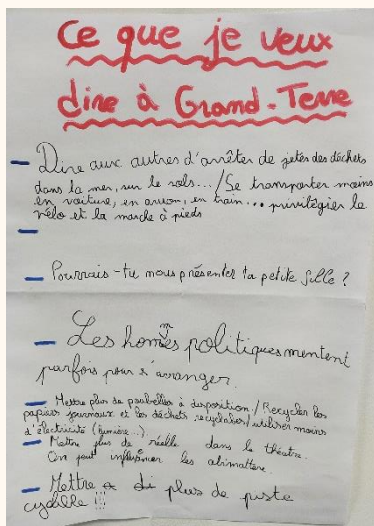 Ce que je veux
dire à Grand-Terre
- Dire aux autres d'arrêter de jetés des déchets
dans la mer, sur le sols.../Se transporter moins
en voiture, en avion, en train... privilégier le
vélo et la marche à pieds
-
- Pourrais-tu nous présenter ta petite fille ?
- Les hommes politiques mentent
parfois pour s'arranger.
- Mettre plus de poubelles à disposition/Recycler les
papiers journaux et les déchets recyclables/utiliser moins
d'électricité (lumière...)
- Mettre plus de réelle dans le théatre.
On peut influencer les
- Mettre di plus de piste
cyclable !!!